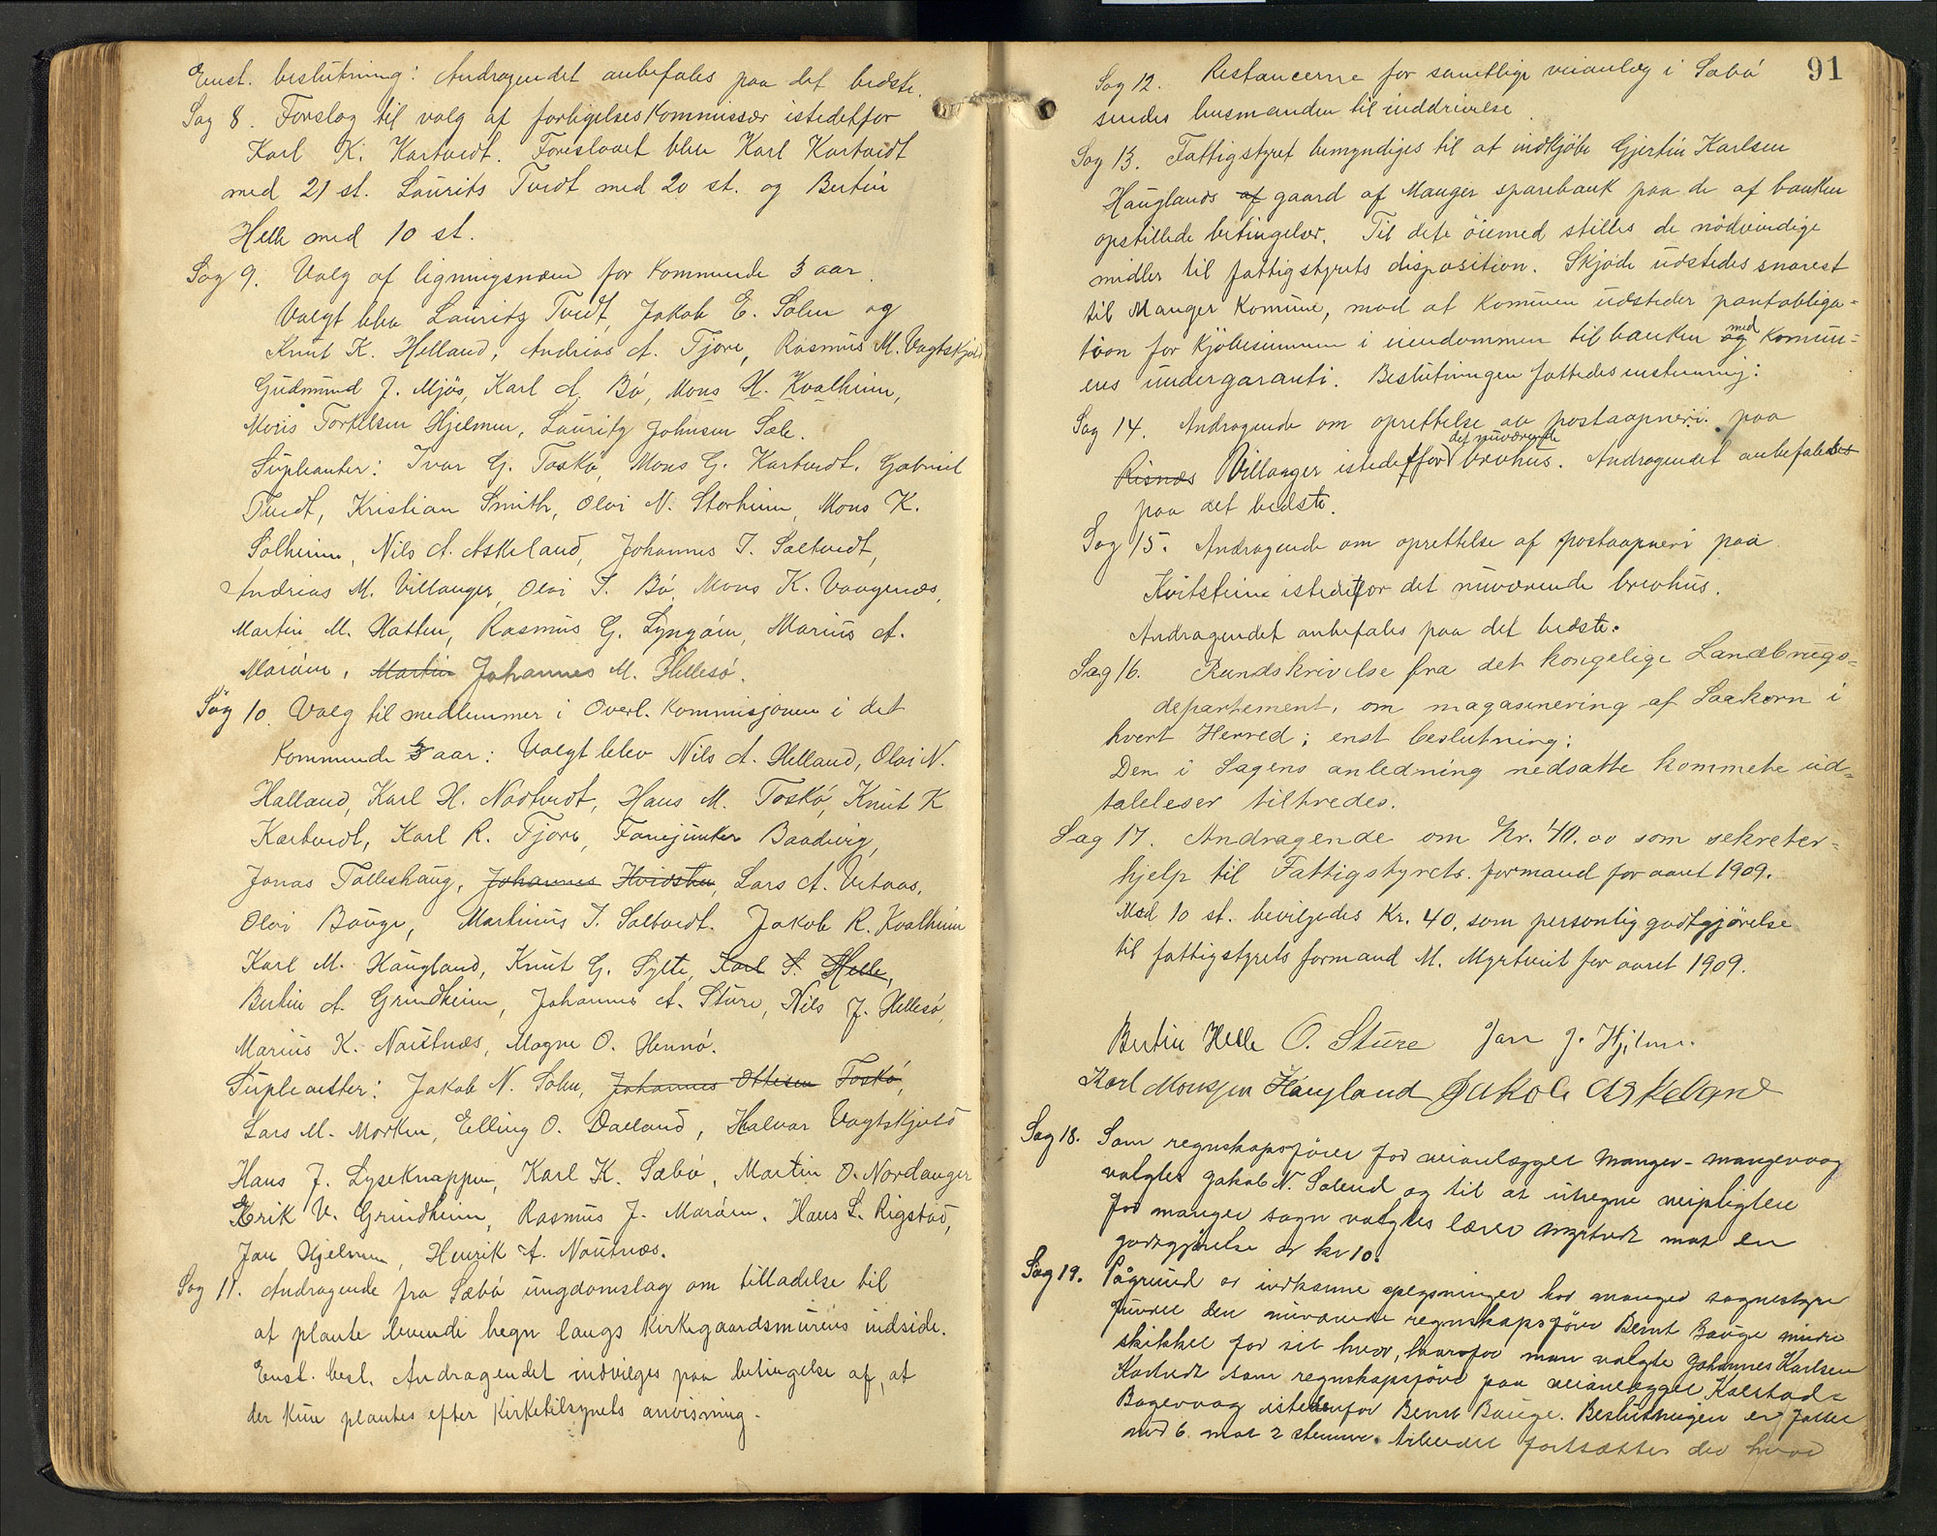 Enst. beslutning: Andragendet anbefales paa det bedste.
Sag 8. Forslag til valg af forligelseskommissær istedetfor
Karl K. Kartveidt. Foreslaaet blev Karl Kartveidt
med 21 st. Laurits Tveidt med 20 st. og Bertin
Helle med 10 st.
Sag 9. Valg af ligningsnævnd for kommende 3 aar.
Valgt blev Lauritz Tveidt, Jakob E. Solen og
Knut K. Helland, Andrias A. Fjore, Rasmus M. Vagtskjold
Gudmund J. Mjøs, Karl A. Bø, Mons H. Kvalheim,
Mons Torkelsen Hjelmen, Lauritz Johnsen Sæle.
Supleanter: Ivar G. Toskø, Mons G. Kartveidt, Gabriel
Tveidt, Kristian Smith, Olai N. Storheim, Mons K.
Solheim, Nils A. Askeland, Johannes T. Saltveidt,
Andrias M. Villanger, Olai T. Bø, Mons K. Vaagenæs,
Martin M. Hatten, Rasmus G. Lyngøien, Marius A.
Marøien, Martin Johannes M. Hellesø.
Sag 10. Valg til medlemmer i Overl. kommisjonen i det
kommende 3 aar: Valgt blev Nils A. Helland, Olai N.
Halland, Karl H. Nodtveidt, Hans M. Toskø, Knut K
Kartveidt, Karl R. Fjore, Fanejunker Baadsvig,
Jonas Tolleshaug, Johannes Hvidsten, Lars A. Vetaas,
Olai Bauge, Martinus T. Saltveidt. Jakob R. Kvalheim
Karl M. Haugland, Knut G. Sylte, Karl S. Helle,
Bertin A. Grindheim, Johannes A. Sture, Nils J. Hellesø,
Marius K. Nautnæs, Magne O. Hennø.
Supleanter: Jakob N. Solen, Johannes Ottesen Toskø,
Lars M. Morken, Elling O. Dalland, Halvor Vagtskjold
Hans J. Lyseknappen, Karl K. Sæbø, Martin O. Nordanger
Erik V. Grindheim, Rasmus J. Marøien, Hans L. Rigstad,
Jan Hjelmen, Henrik A. Nautnæs.
Sag 11. Andragende fra Sæbø ungdomslag om tilladelse til
at plante levende hegn langs kirkegaardsmurens indside.
Enst. besl. Andragendet indvilges paa betingelse af, at
der kun plantes efter Kirketilsynets anvisning.
91
Sag 12. Restancerne for samtlige veianlæg i Sæbø
sendes lensmanden til inddrivelse.
Sag 13. Fattigstyret bemyndiges til at indkjøbe Gjertin Karlsen
Hauglands af gaard af Manger sparebank paa de af banken
opstillede betingelser. Til dete øiemed stilles de nødvendige
midler til fattigstyrets disposition. Skjøde udstedes snarest
til Manger Komune, mod at komunen udsteder pantobliga-
tion for kjøbesummen i eiendommen til banken og med komun-
ens undergaranti. Beslutningen fattedes enstemmig:
Sag 14. Andragende om oprettelse av postaapneri paa
Risnæs Villanger istedetfor det nuværende brevhus. Andragendet anbefaledes
paa det bedste.
Sag 15. Andragende om oprettelse af postaapneri paa
Kvitstein istedetfor det nuværende brevhus.
Andragendet anbefales paa det bedste.
Sag 16. Rundskrivelse fra det kongelige Landbrugs-
departement, om magasinering af Saakorn i
hvert Herred; enst beslutning:
Den i Sagens anledning nedsatte kommete ud-
taleleser tiltredes.
Sag 17. Andragende om Kr. 40.00 som sekreter-
hjelp til Fattigstyrets formand for aaret 1909.
Med 10 st. bevilgedes Kr. 40, som personlig godtgjørelse
til fattigstyrets formand M. Myrtveit for aaret 1909.
Bertin Helle O. Sture Jan J. Hjelme.
Karl Monssen Haugland Jakob Askeland
Sag 18. Som regnskapsfører for veianlægget Manger-Mangervaag
valgtes Jakob N. Solend og til at utregne veipligten
for manger sogn valgtes lærer Myrtvedt mot en
godtgjørelse av kr 10.
Sag 19. Pågrund av indkomne oplysninger hos manger sognestyre
finder den nuværende regnskapsfører Bernt Bauge mindre
skikket for sit hverv, hvorfor man valgte Johannes Karlsen
Kartvedt som regnskapsfører paa veianlægget Kalstad-
Bøgevaag istedenfor Bernt Bauge. Beslutningen er fattet
med 6 mot 2 stemmer. Arbeidet fortsættes der hvor